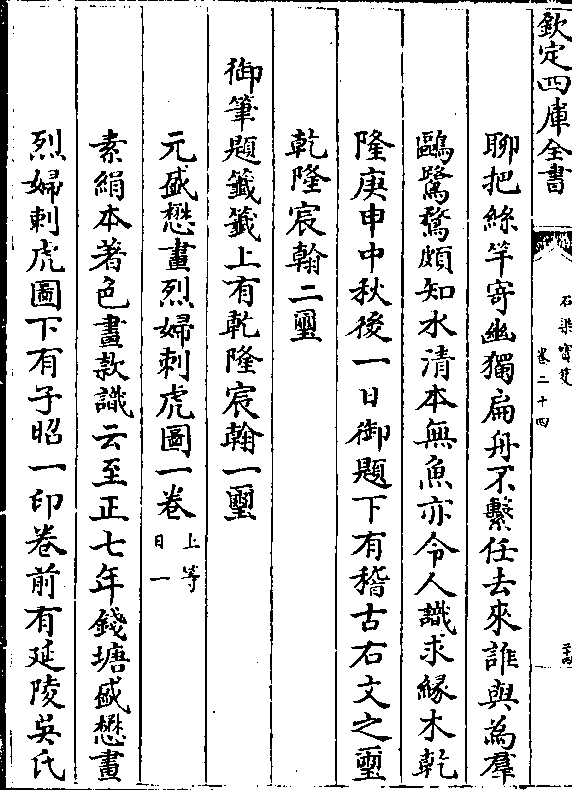 欽定四庫全書
石渠寶笈
卷二十四
聊把絲竿寄幽獨扁舟不繫任去來誰與為羣
鷗鷺鶩頗知水清本無魚亦令人識求緣木乾
隆庚申中秋後一日御題下有稽古右文之璽
乾隆宸翰二璽
御筆題籤籤上有乾隆宸翰一璽
元盛懋畫烈婦刺虎圖一卷 上等
日一
素絹本著色畫款識云至正七年錢塘盛懋畫
烈婦刺虎圖下有子昭一印卷前有延陵吳氏